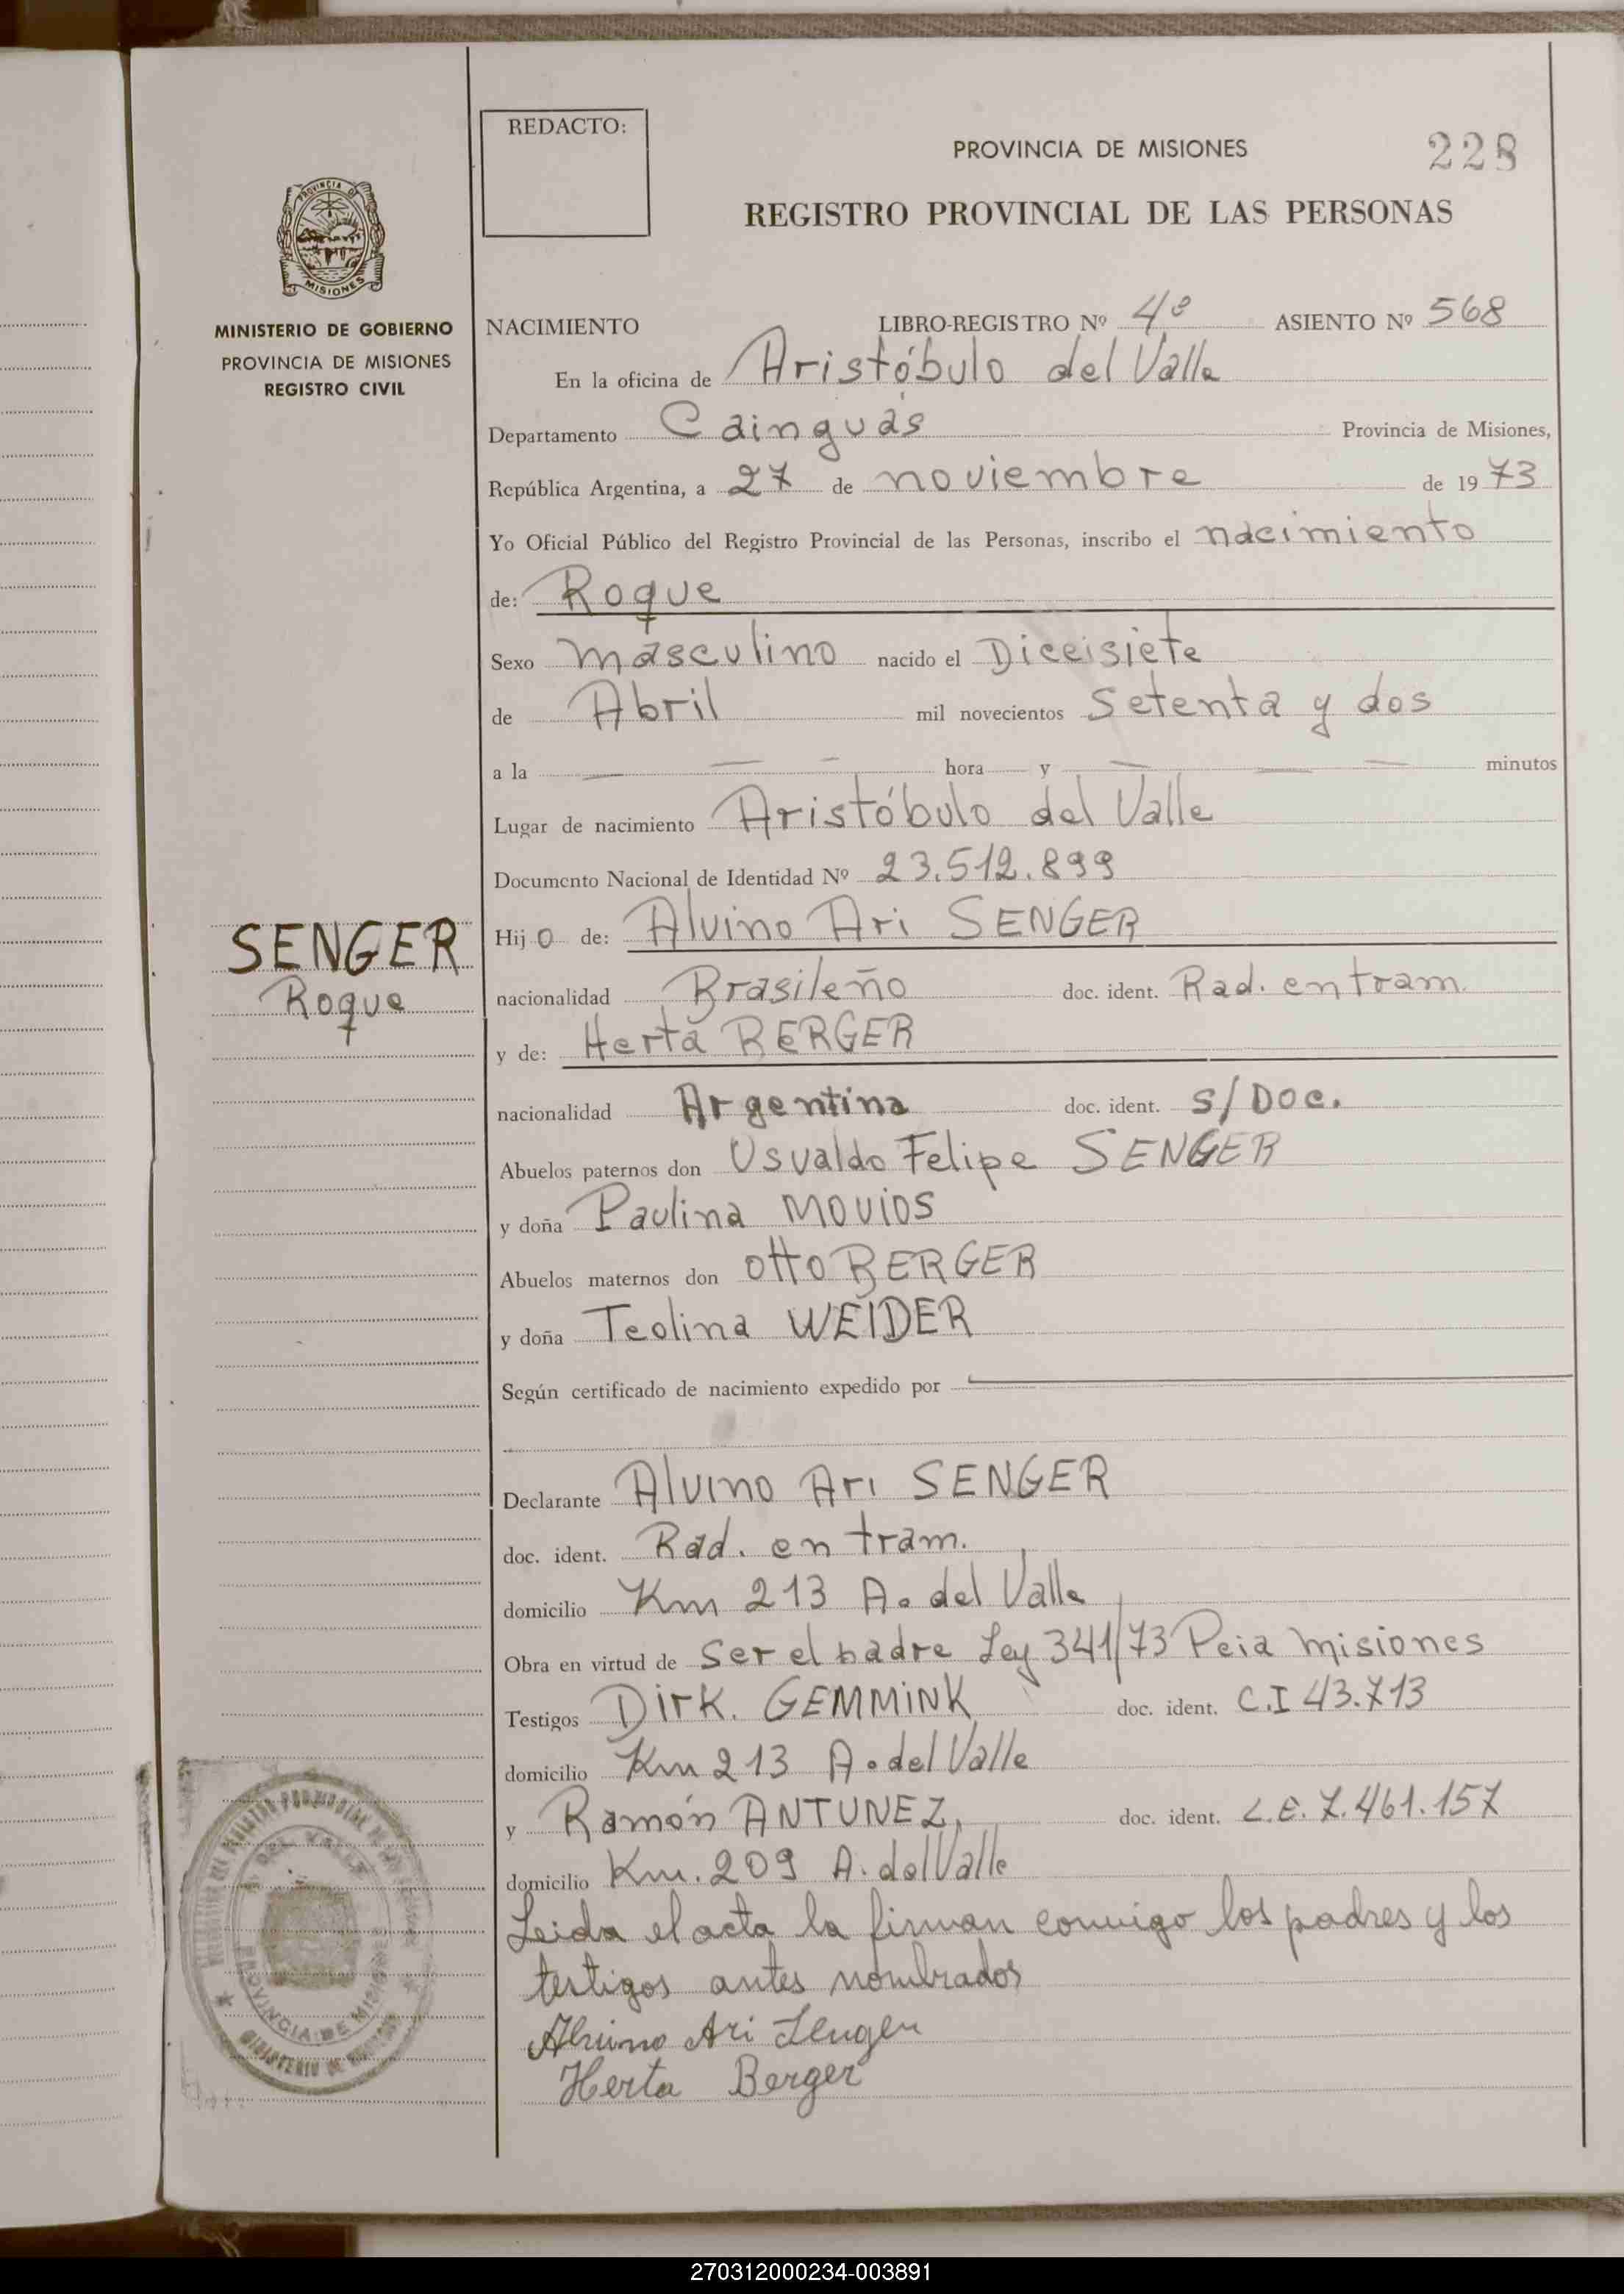 REDACTO:
PROVINCIA DE MISIONES
228
REGISTRO PROVINCIAL DE LAS PERSONAS
PROVINCIA DE
MISIONES
MINISTERIO DE GOBIERNO
PROVINCIA DE MISIONES
REGISTRO CIVIL
NACIMIENTO LIBRO-REGISTRO Nº 4º ASIENTO Nº 568
En la oficina de Aristóbulo del Valle
Departamento Cainguás Provincia de Misiones,
República Argentina, a 27 de noviembre de 1973
Yo Oficial Público del Registro Provincial de las Personas, inscribo el nacimiento
de: Roque
Sexo masculino nacido el Dieeisiete
de Abril mil novecientos Setenta y dos
a la — — — hora y — — — minutos
Lugar de nacimiento Aristóbulo del Valle
Documento Nacional de Identidad Nº 23.512.899
SENGER
Roque
Hijo de: Alvino Ari SENGER
nacionalidad Brasileño doc. ident. Rad. en tram.
y de: Herta BERGER
nacionalidad Argentina doc. ident. S/Doc.
Abuelos paternos don Usvaldo Felipe SENGER
y doña Paulina MOVIOS
Abuelos maternos don Otto BERGER
y doña Teolina WEIDER
Según certificado de nacimiento expedido por
Declarante Alvino Ari SENGER
doc. ident. Rad. en tram.
domicilio Km 213 A. del Valle
Obra en virtud de Ser el padre Ley 341/73 Pcia Misiones
Testigos Dirk. GEMMINK doc. ident. C.I 43.713
domicilio Km 213 A. del Valle
y Ramón ANTUNEZ, doc. ident. L.E. 7.461.157
domicilio Km. 209 A. del Valle
Leida el acta la firman conmigo los padres y los
testigos antes nombrados
Alvino Ari Senger
Herta Berger
PROVINCIA DE MISIONES
270312000234-003891